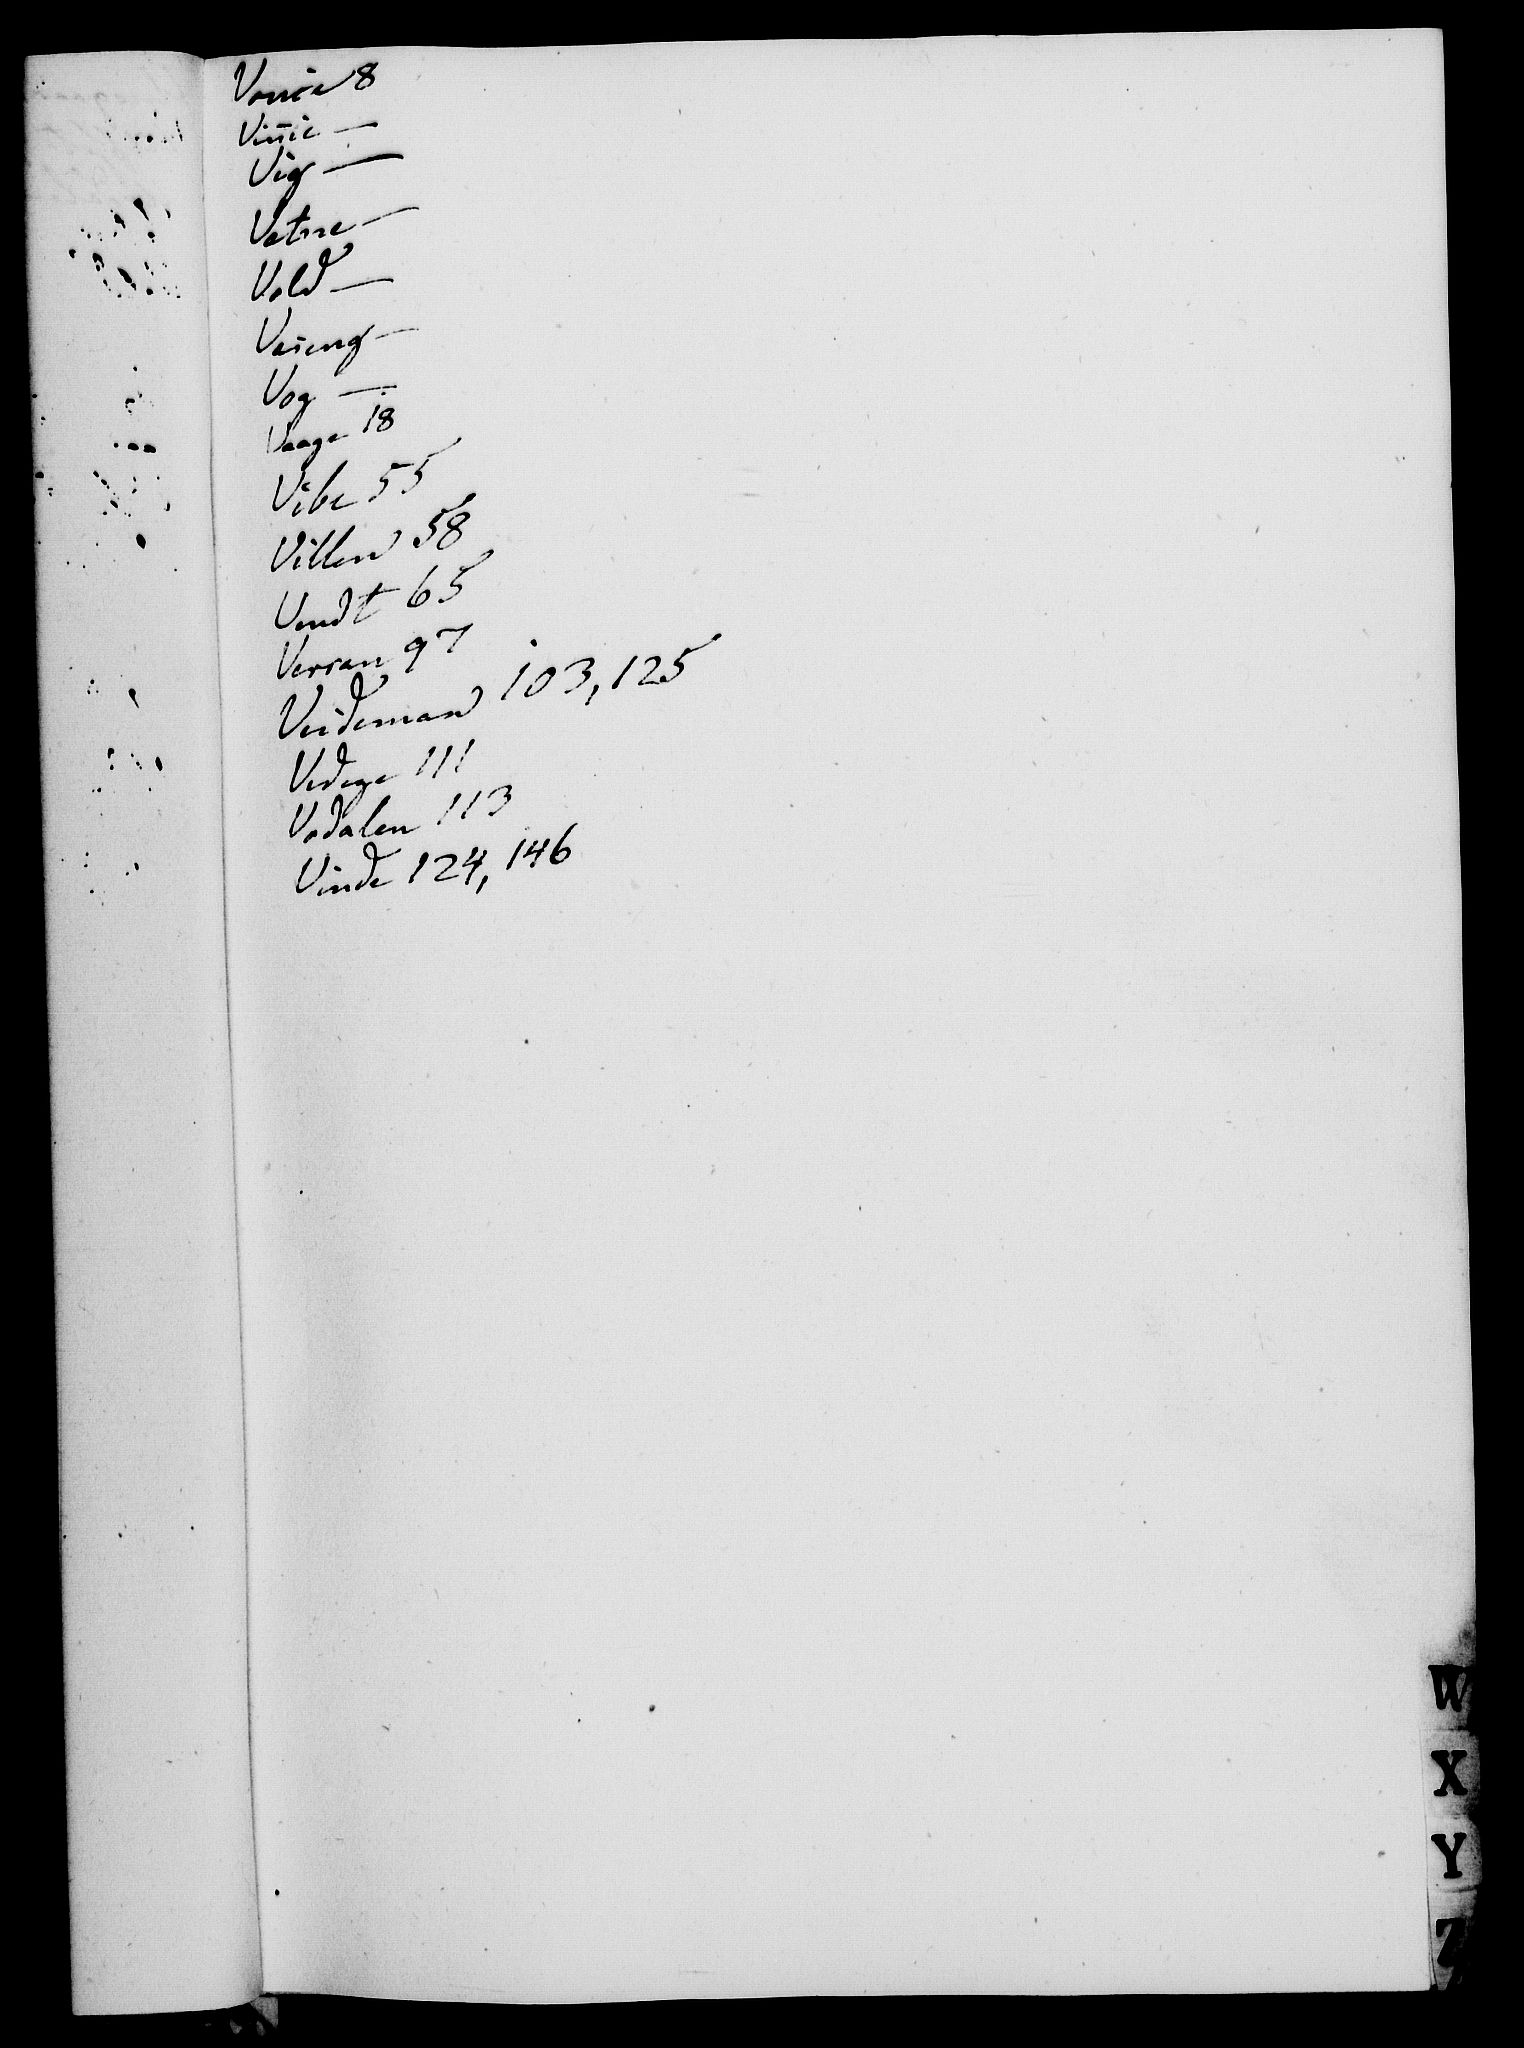 Vonie 8
Vinie —
Vig —
Vatne —
Vold —
Vaieng —
Vog —
Vaage 18
Vibe 55
Villen 58
Vendt 65
Versan 97
Veideman 103, 125
Vedege 111
Vodalen 113
Vinde 124, 146
W
X
Y
Z